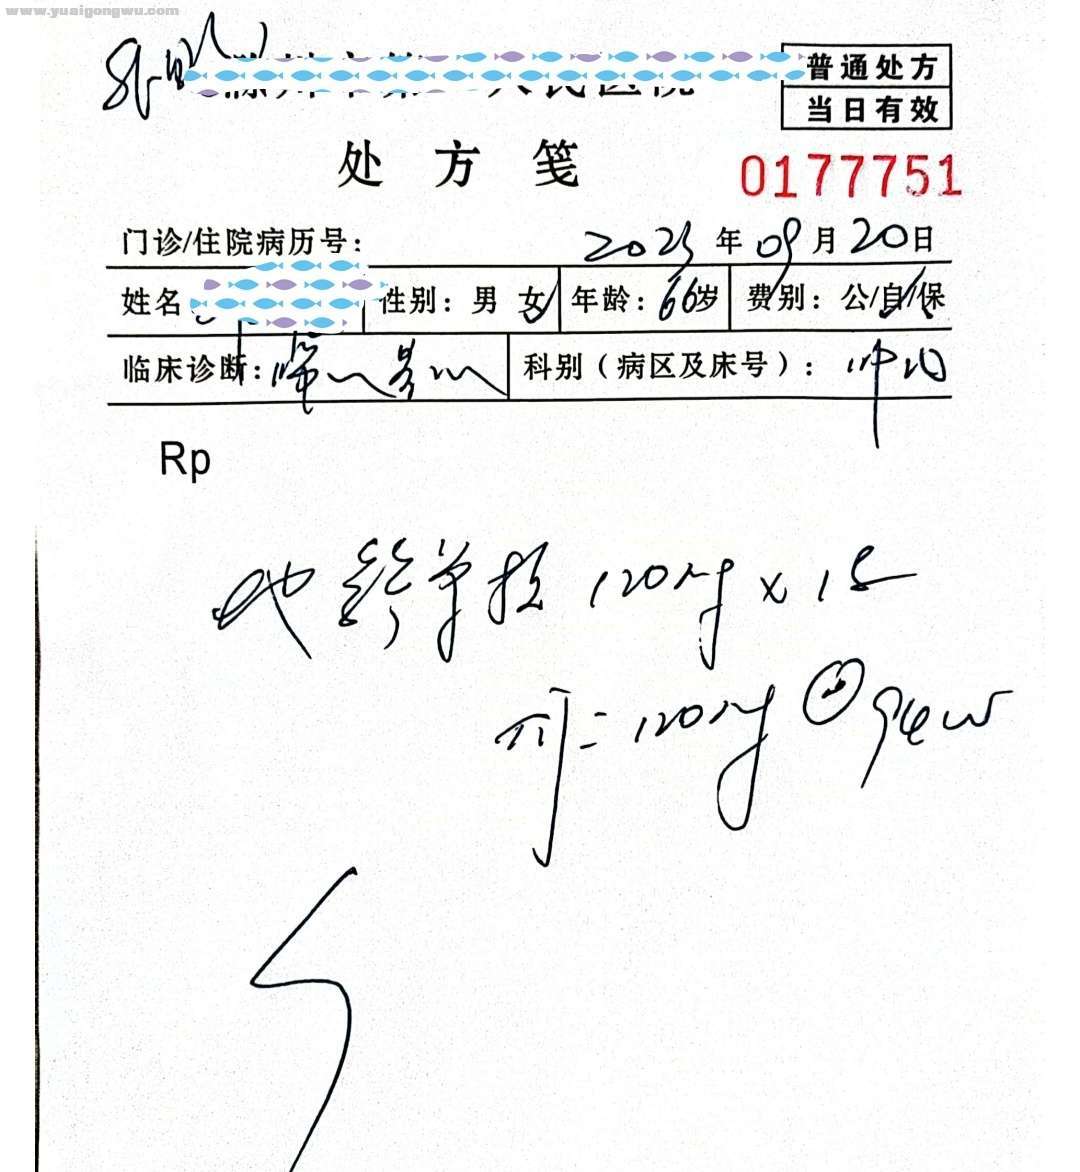 www.yuaigongwu.com
外购
人民医院
普通处方
当日有效
处方笺
0177751
门诊/住院病历号: 2023年09月20日
姓名 性别: 男 女 年龄: 66岁 费别: 公/自/保
临床诊断: 科别（病区及床号）:
Rp
地舒单抗 120mg x 1支
用: 120mg q4w